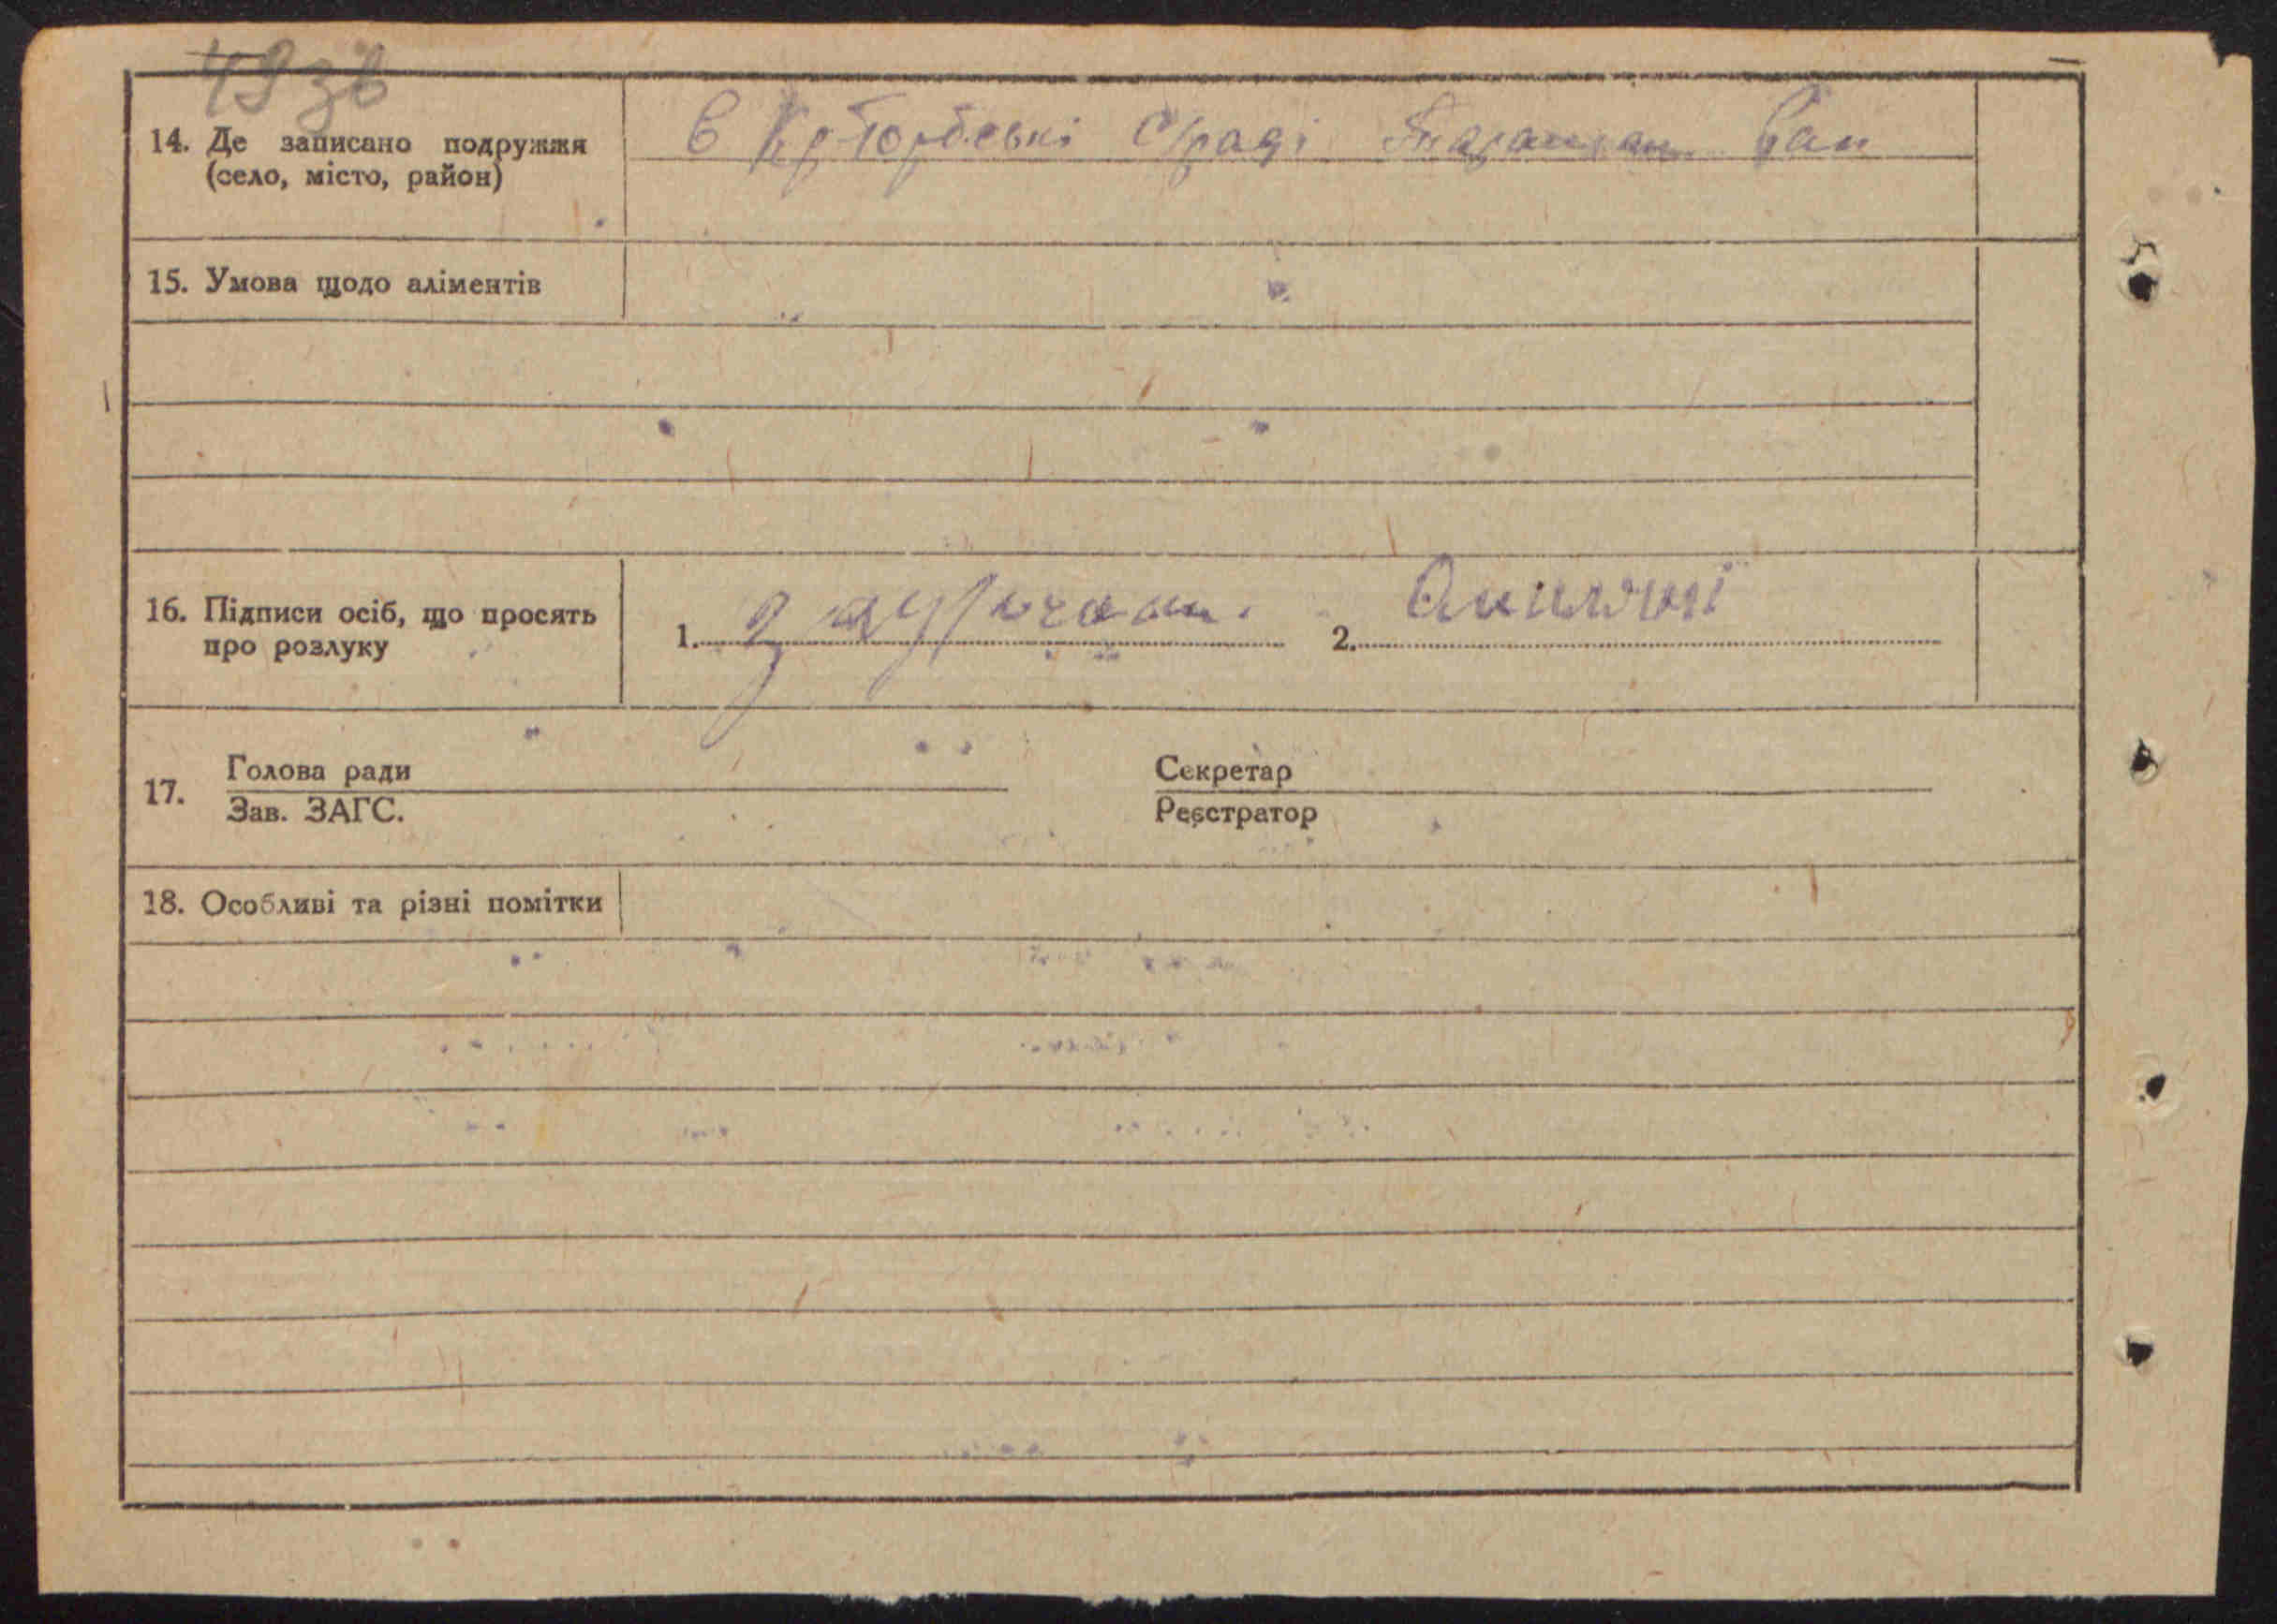 49зв
14. Де записано подружжя
(село, місто, район)
В с/раді
15. Умова щодо аліментів
16. Підписи осіб, що просять
про розлуку
1. 2.
17. Голова ради Секретар
Зав. ЗАГС. Реєстратор
18. Особливі та різні помітки